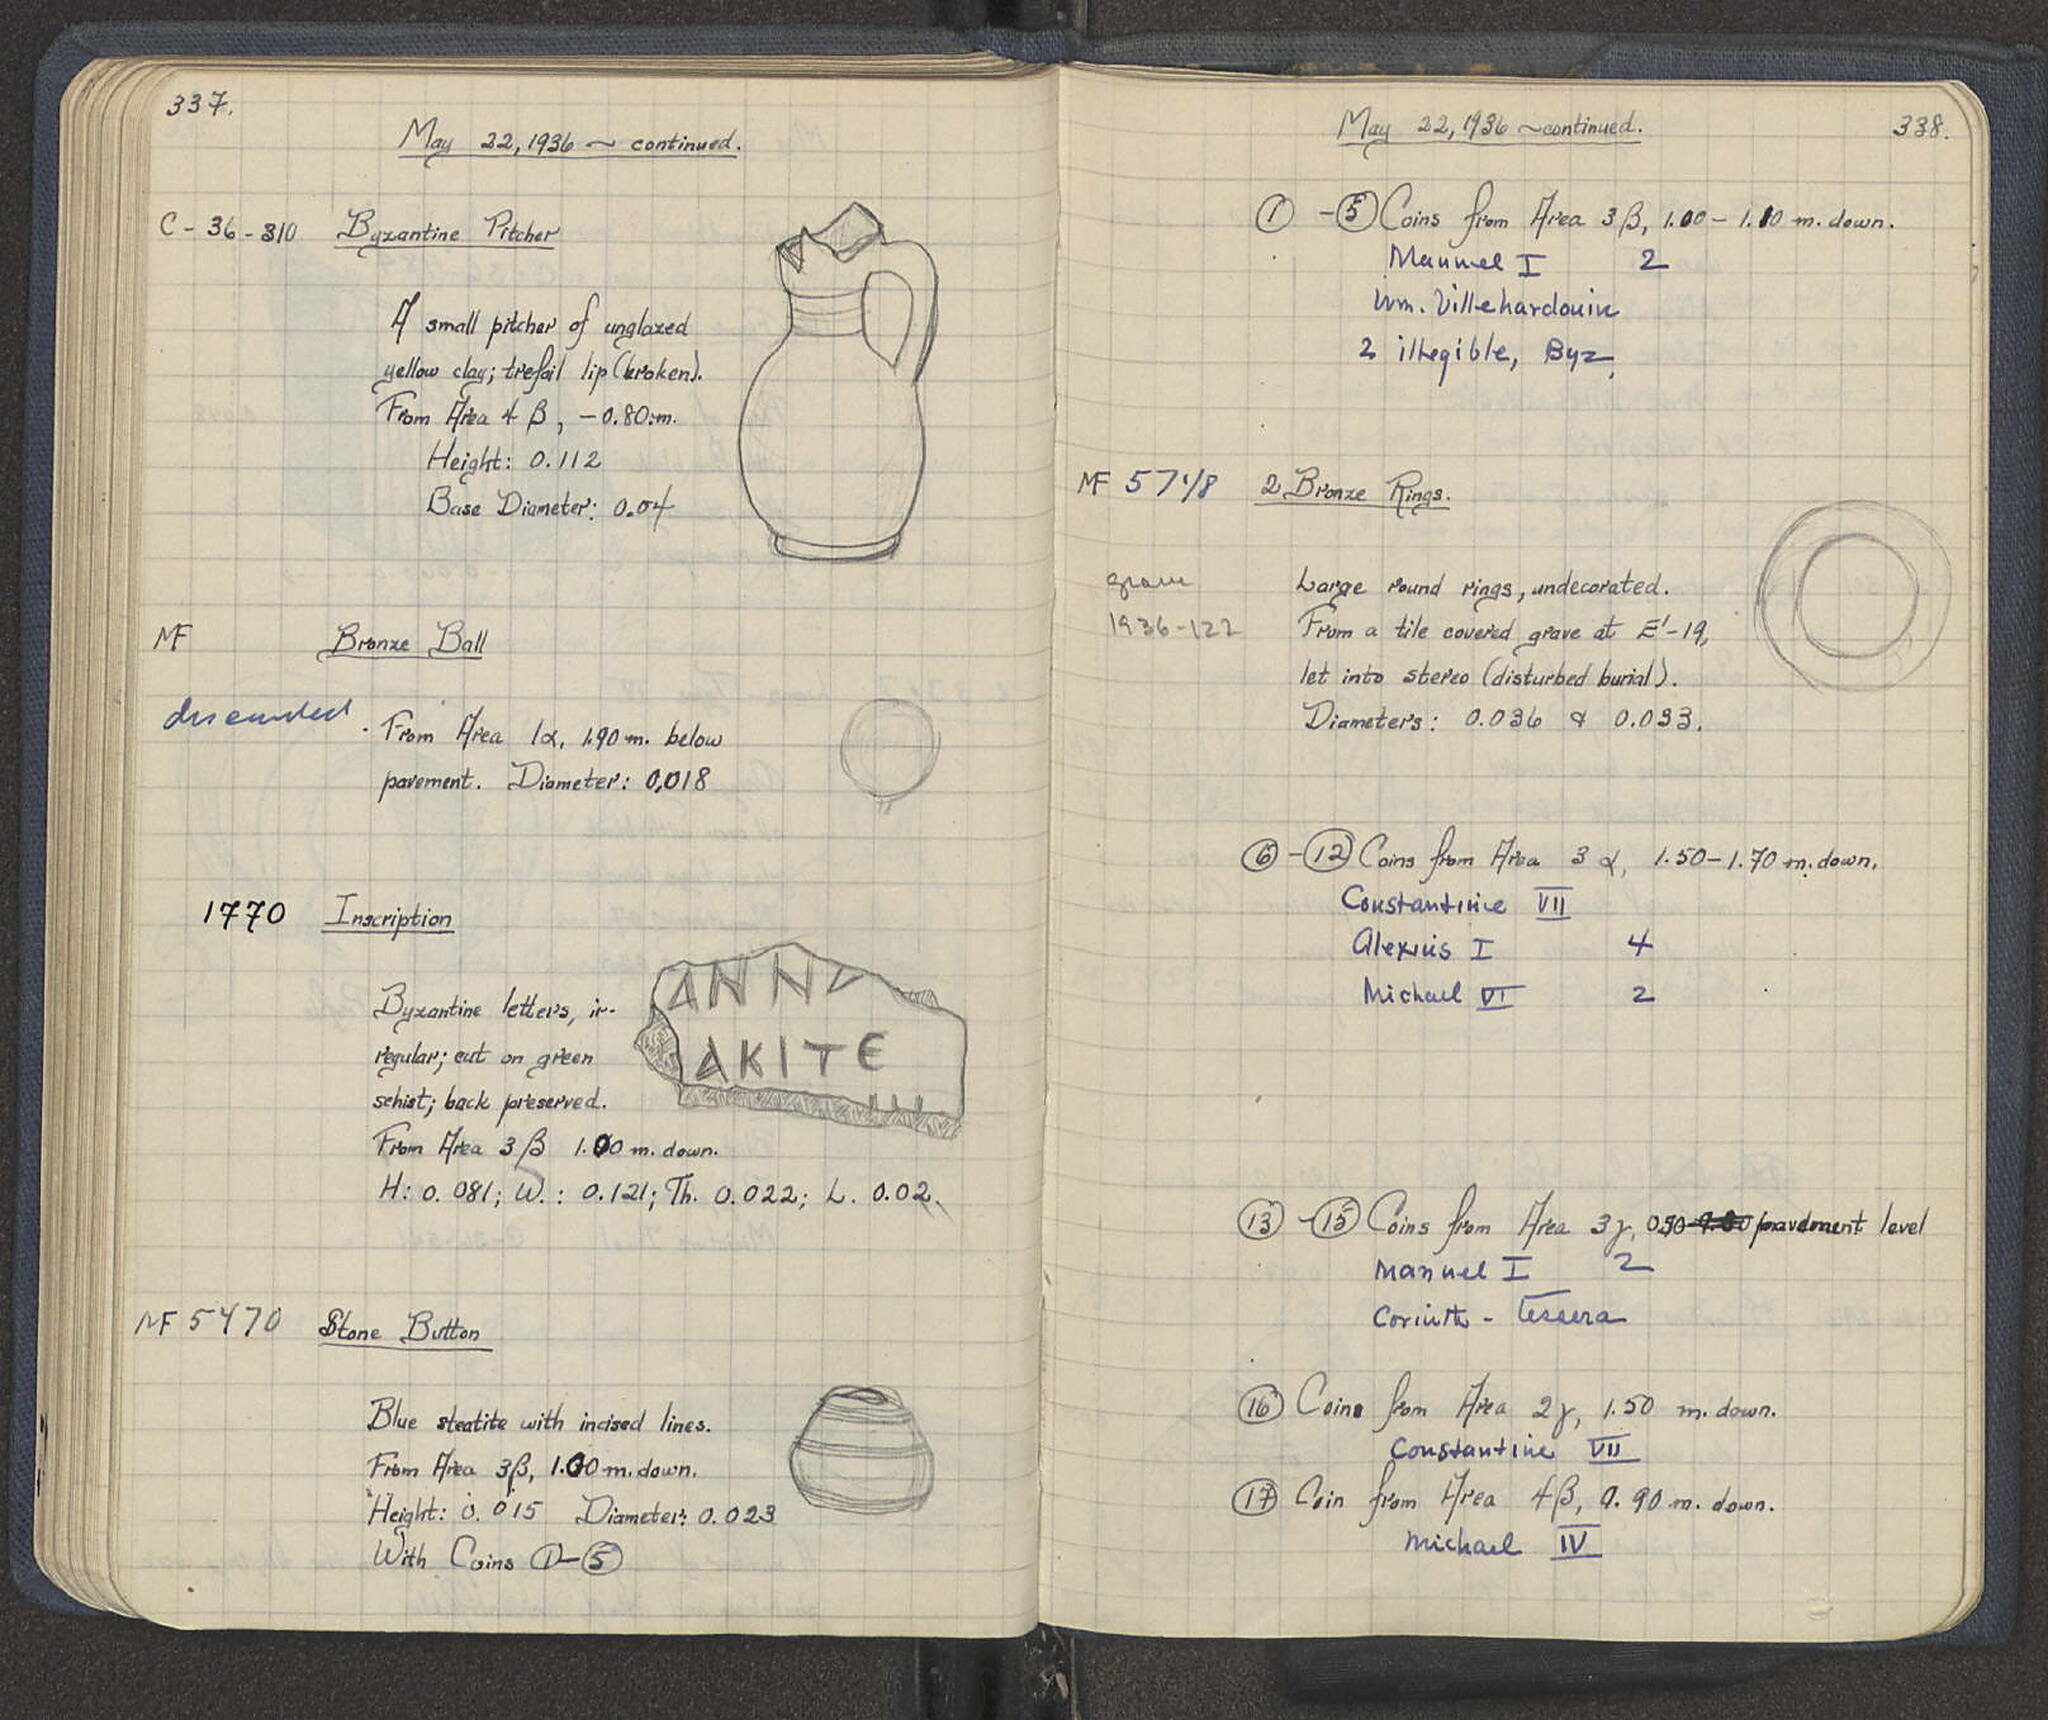 337.
May 22, 1936 ~ continued.
C - 36 - 310 Byzantine Pitcher
A small pitcher of unglazed
yellow clay; trefoil lip (broken).
From Area 4 β, - 0.80 m.
Height: 0.112
Base Diameter: 0.04
MF Bronze Ball
discarded
From Area 1α, 1.90 m. below
pavement. Diameter: 0,018
1770 Inscription
Byzantine letters, ir-
regular; cut on green
schist; back preserved.
From Area 3 β 1.00 m. down.
H: 0.081; W.: 0.121; Th. 0.022; L. 0.02.
ANN
AKITE
MF 5470 Stone Button
Blue steatite with incised lines.
From Area 3β, 1.00 m. down.
Height: 0.015 Diameter: 0.023
With Coins 1 - 5
May 22, 1936 ~ continued.
338.
1 - 5 Coins from Area 3 β, 1.00 - 1.10 m. down.
Manuel I 2
Wm. Villehardouin
2 illegible, Byz.
MF 57 2 Bronze Rings.
grave
1936-122
Large round rings, undecorated.
From a tile covered grave at E'-19,
let into stereo (disturbed burial).
Diameters: 0.036 & 0.033.
6 - 12 Coins from Area 3 α, 1.50 - 1.70 m. down.
Constantine VII
Alexius I 4
Michael VI 2
13 - 15 Coins from Area 3γ, pavement level
Manuel I 2
Corinth - tessera
16 Coin from Area 2γ, 1.50 m. down.
Constantine VII
17 Coin from Area 4β, 0.90 m. down.
Michael IV